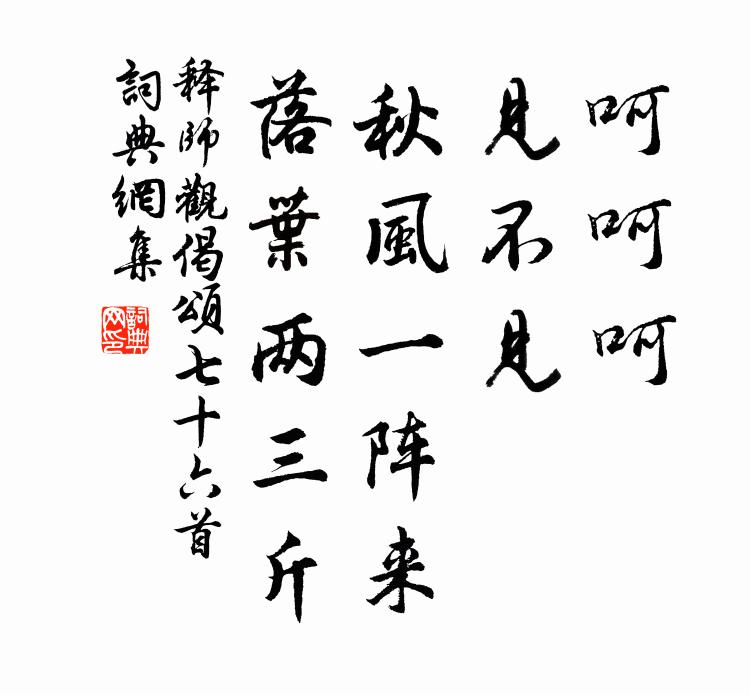 呵呵呵
見不見
秋風一阵来
落葉两三斤
释師觀偈頌七十六首
詞典網集
詞典网印